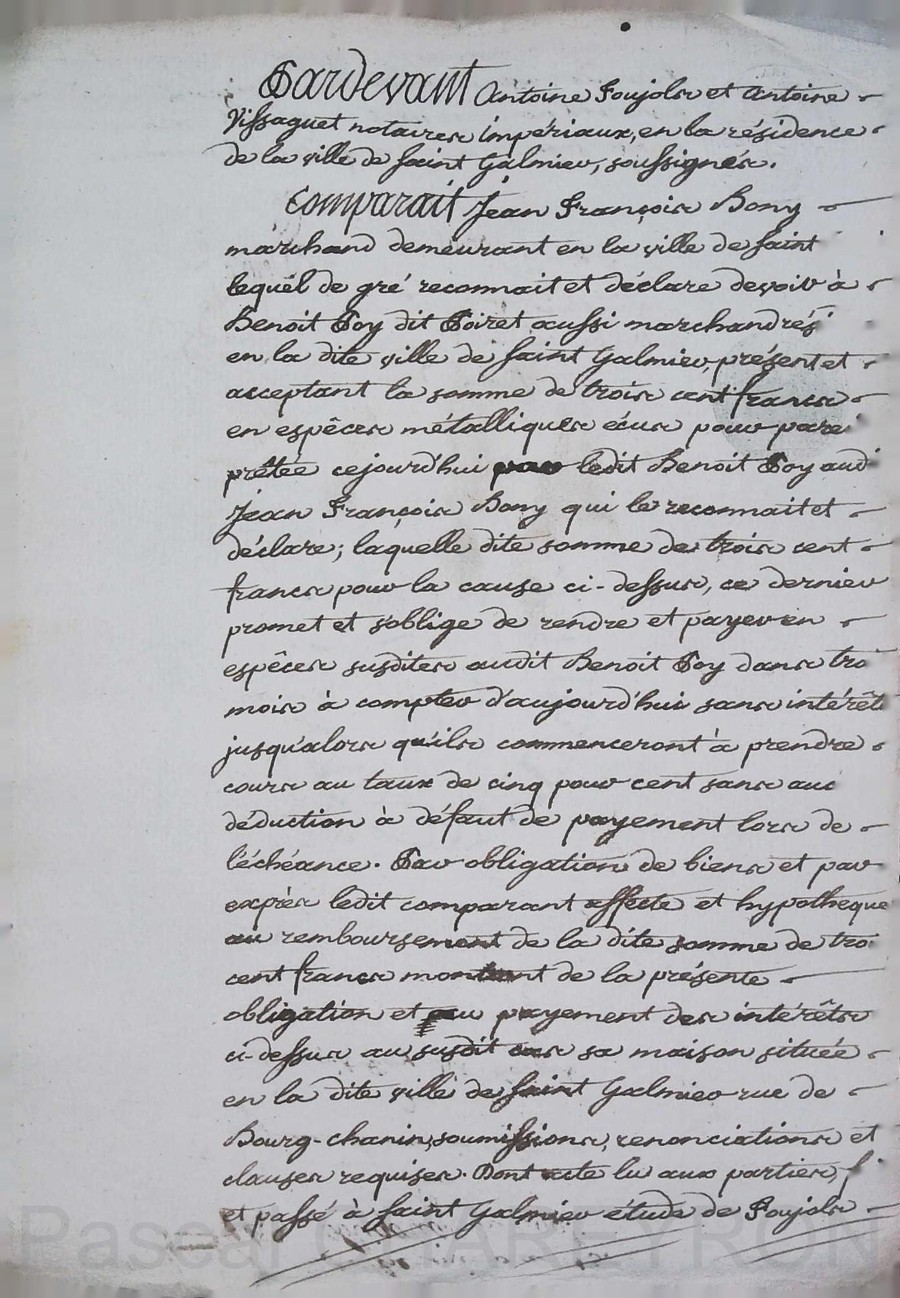 Pardevant Antoine Poujols et Antoine
Vissaguet notaires impériaux, en la résidence
de la ville de saint Galmier, soussignés.
Comparait Jean François Bony
marchand demeurant en la ville de saint
lequel de gré reconnait et déclare devoir à
Benoit Poy dit Poiret aussi marchand rés
en la dite ville de saint Galmier, présent et
acceptant la somme de trois cent francs
en espêces métalliques écus pour parei
prêtée cejourd'hui par ledit Benoit Poy aud
Jean François Bony qui le reconnait et
déclare; laquelle dite somme de trois cent
francs pour la cause ci-dessus, ce dernier
promet et s'oblige de rendre et payer en
espêces susdites audit Benoit Poy dans troi
mois à compter d'aujourd'hui sans intérêts
jusqu'alors qu'ils commenceront à prendre
cours au taux de cinq pour cent sans auc
déduction à défaut de payement lors de
l'échéance. Par obligation de biens et par
exprès ledit comparant affecte et hypotheque
au remboursement de la dite somme de troi
cent francs montant de la présente
obligation et au payement des intérêts
ci-dessus au susdit cas sa maison située
en la dite ville de saint Galmier rue de
Bourg-chanin, soumissions, renonciations et
clauses requises. Dont acte lu aux parties, f
et passé à saint Galmier étude de Poujols
Pascal CHAREYRON